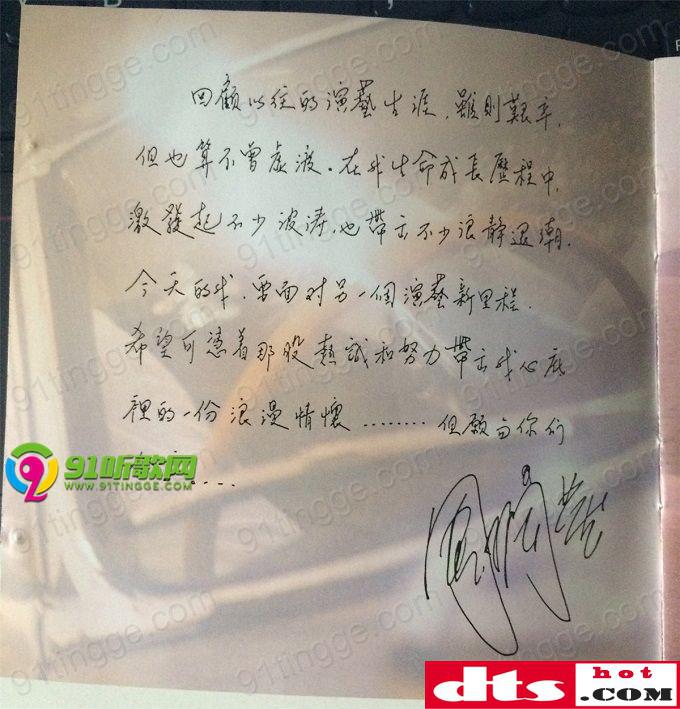 回顧以往的演藝生涯,雖則艱辛,
但也算不曾虛渡。在我生命成長歷程中,
激發起不少波涛,也帶出不少浪靜退潮.
今天的我,要面对另一個演藝新里程.
希望可憑着那股熱誠和努力帶出我心底
裡的一份浪漫情懷........但願与你们
....
91听歌网
WWW.91TINGGE.COM
91tingge.com
dts
hot
.COM